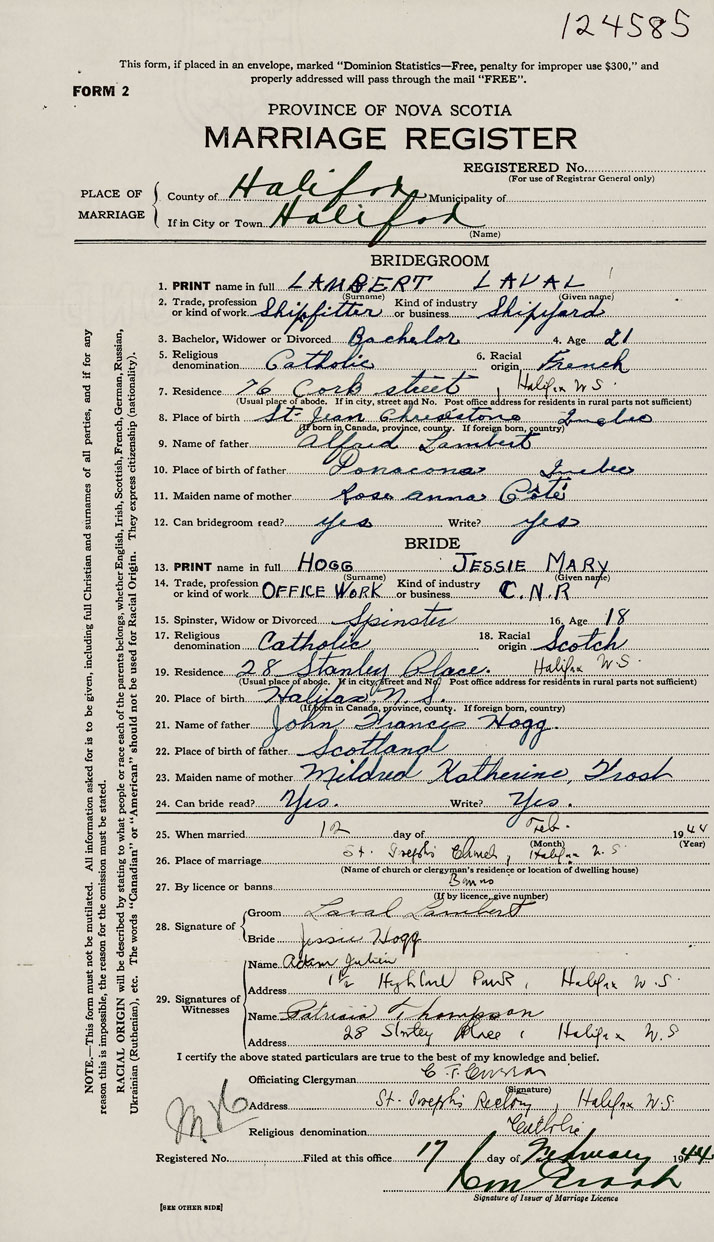 124585
This form, if placed in an envelope, marked "Dominion Statistics—Free, penalty for improper use $300," and
properly addressed will pass through the mail "FREE".
FORM 2
PROVINCE OF NOVA SCOTIA
MARRIAGE REGISTER
REGISTERED No.
(For use of Registrar General only)
PLACE OF MARRIAGE
County of Halifax Municipality of
If in City or Town Halifax
(Name)
BRIDEGROOM
1. PRINT name in full LAMBERT LAVAL
(Surname) (Given name)
2. Trade, profession or kind of work Shipfitter Kind of industry or business Shipyard
3. Bachelor, Widower or Divorced Bachelor 4. Age 21
5. Religious denomination Catholic 6. Racial origin French
7. Residence 76 Cork street, Halifax N.S.
(Usual place of abode. If in city, street and No. Post office address for residents in rural parts not sufficient)
8. Place of birth St. Jean Quebec
(If born in Canada, province, county. If foreign born, country)
9. Name of father Alfred Lambert
10. Place of birth of father Quebec
11. Maiden name of mother Rose anna Côté
12. Can bridegroom read? yes Write? yes
BRIDE
13. PRINT name in full HOGG JESSIE MARY
(Surname) (Given name)
14. Trade, profession or kind of work OFFICE WORK Kind of industry or business C.N.R
15. Spinster, Widow or Divorced Spinster 16. Age 18
17. Religious denomination Catholic 18. Racial origin Scotch
19. Residence 28 Stanley Place. Halifax N.S.
(Usual place of abode. If in city, street and No. Post office address for residents in rural parts not sufficient)
20. Place of birth Halifax N.S.
(If born in Canada, province, county. If foreign born, country)
21. Name of father John Francis Hogg.
22. Place of birth of father Scotland
23. Maiden name of mother Mildred Katherine, Frost
24. Can bride read? Yes. Write? Yes.
25. When married 12 day of Feb. 1944
(Month) (Year)
26. Place of marriage St. Joseph's Church, Halifax N.S.
(Name of church or clergyman's residence or location of dwelling house)
27. By licence or banns Banns
(If by licence, give number)
28. Signature of
Groom Laval Lambert
Bride Jessie Hogg
29. Signatures of Witnesses
Name Adam Julien
Address Highland Park, Halifax N.S.
Name Patricia Thompson
Address 28 Stanley Place, Halifax N.S.
I certify the above stated particulars are true to the best of my knowledge and belief.
Officiating Clergyman C. T. Curran
(Signature)
Address St. Joseph's Rectory, Halifax N.S.
Religious denomination Catholic
Registered No. Filed at this office 17 day of February 1944
Signature of Issuer of Marriage Licence
[SEE OTHER SIDE]
NOTE.—This form must not be mutilated. All information asked for is to be given, including full Christian and surnames of all parties, and if for any
reason this is impossible, the reason for the omission must be stated.
RACIAL ORIGIN will be described by stating to what people or race each of the parents belongs, whether English, Irish, Scottish, French, German, Russian,
Ukrainian (Ruthenian), etc. The words "Canadian" or "American" should not be used for Racial Origin. They express citizenship (nationality).